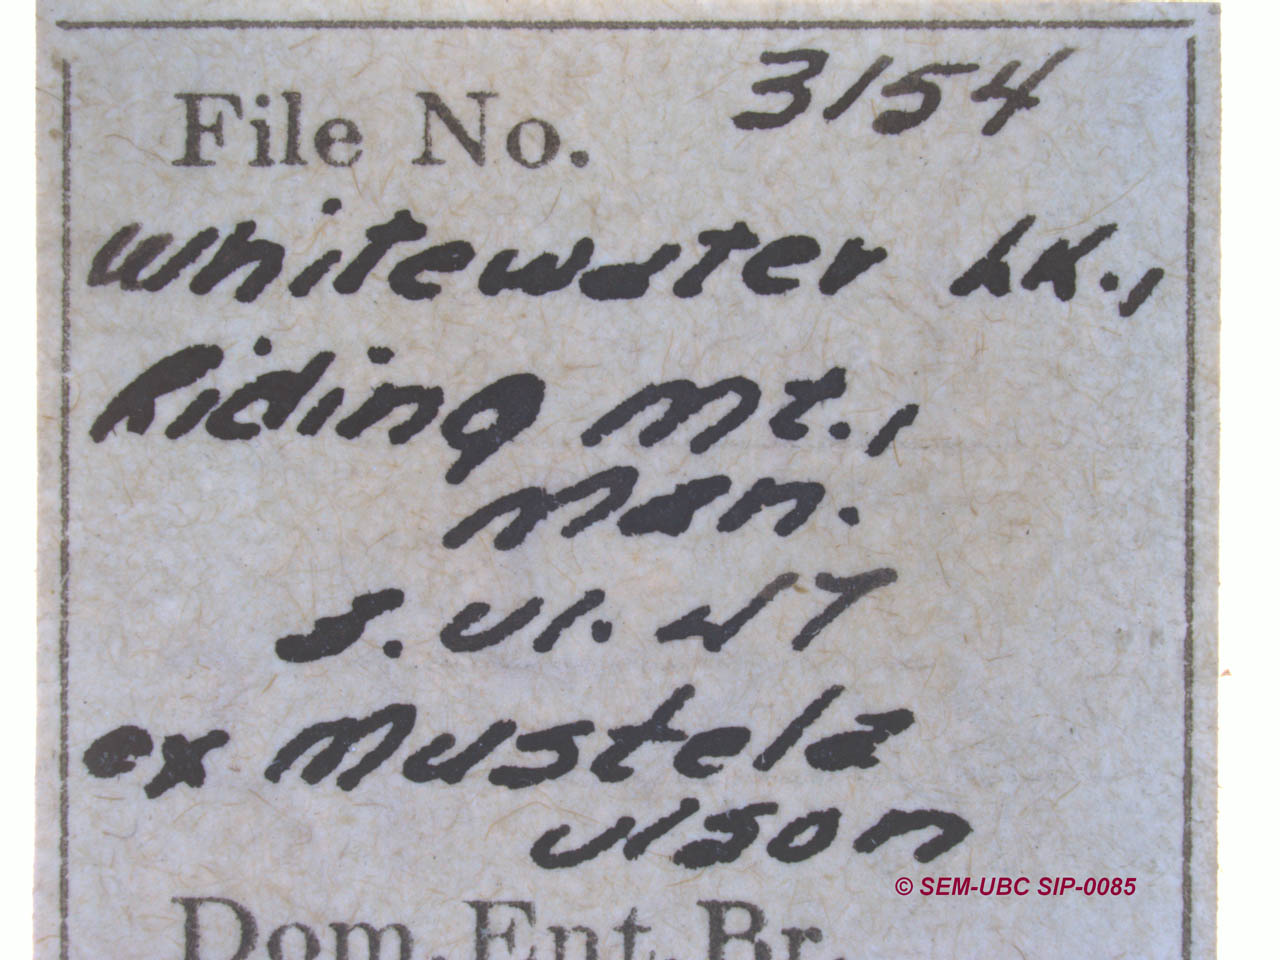 File No. 3154
Whitewater Lk.,
Riding Mt.,
Man.
3. VI. 47
ex Mustela
vison
© SEM-UBC SIP-0085
Dom. Ent. Br.